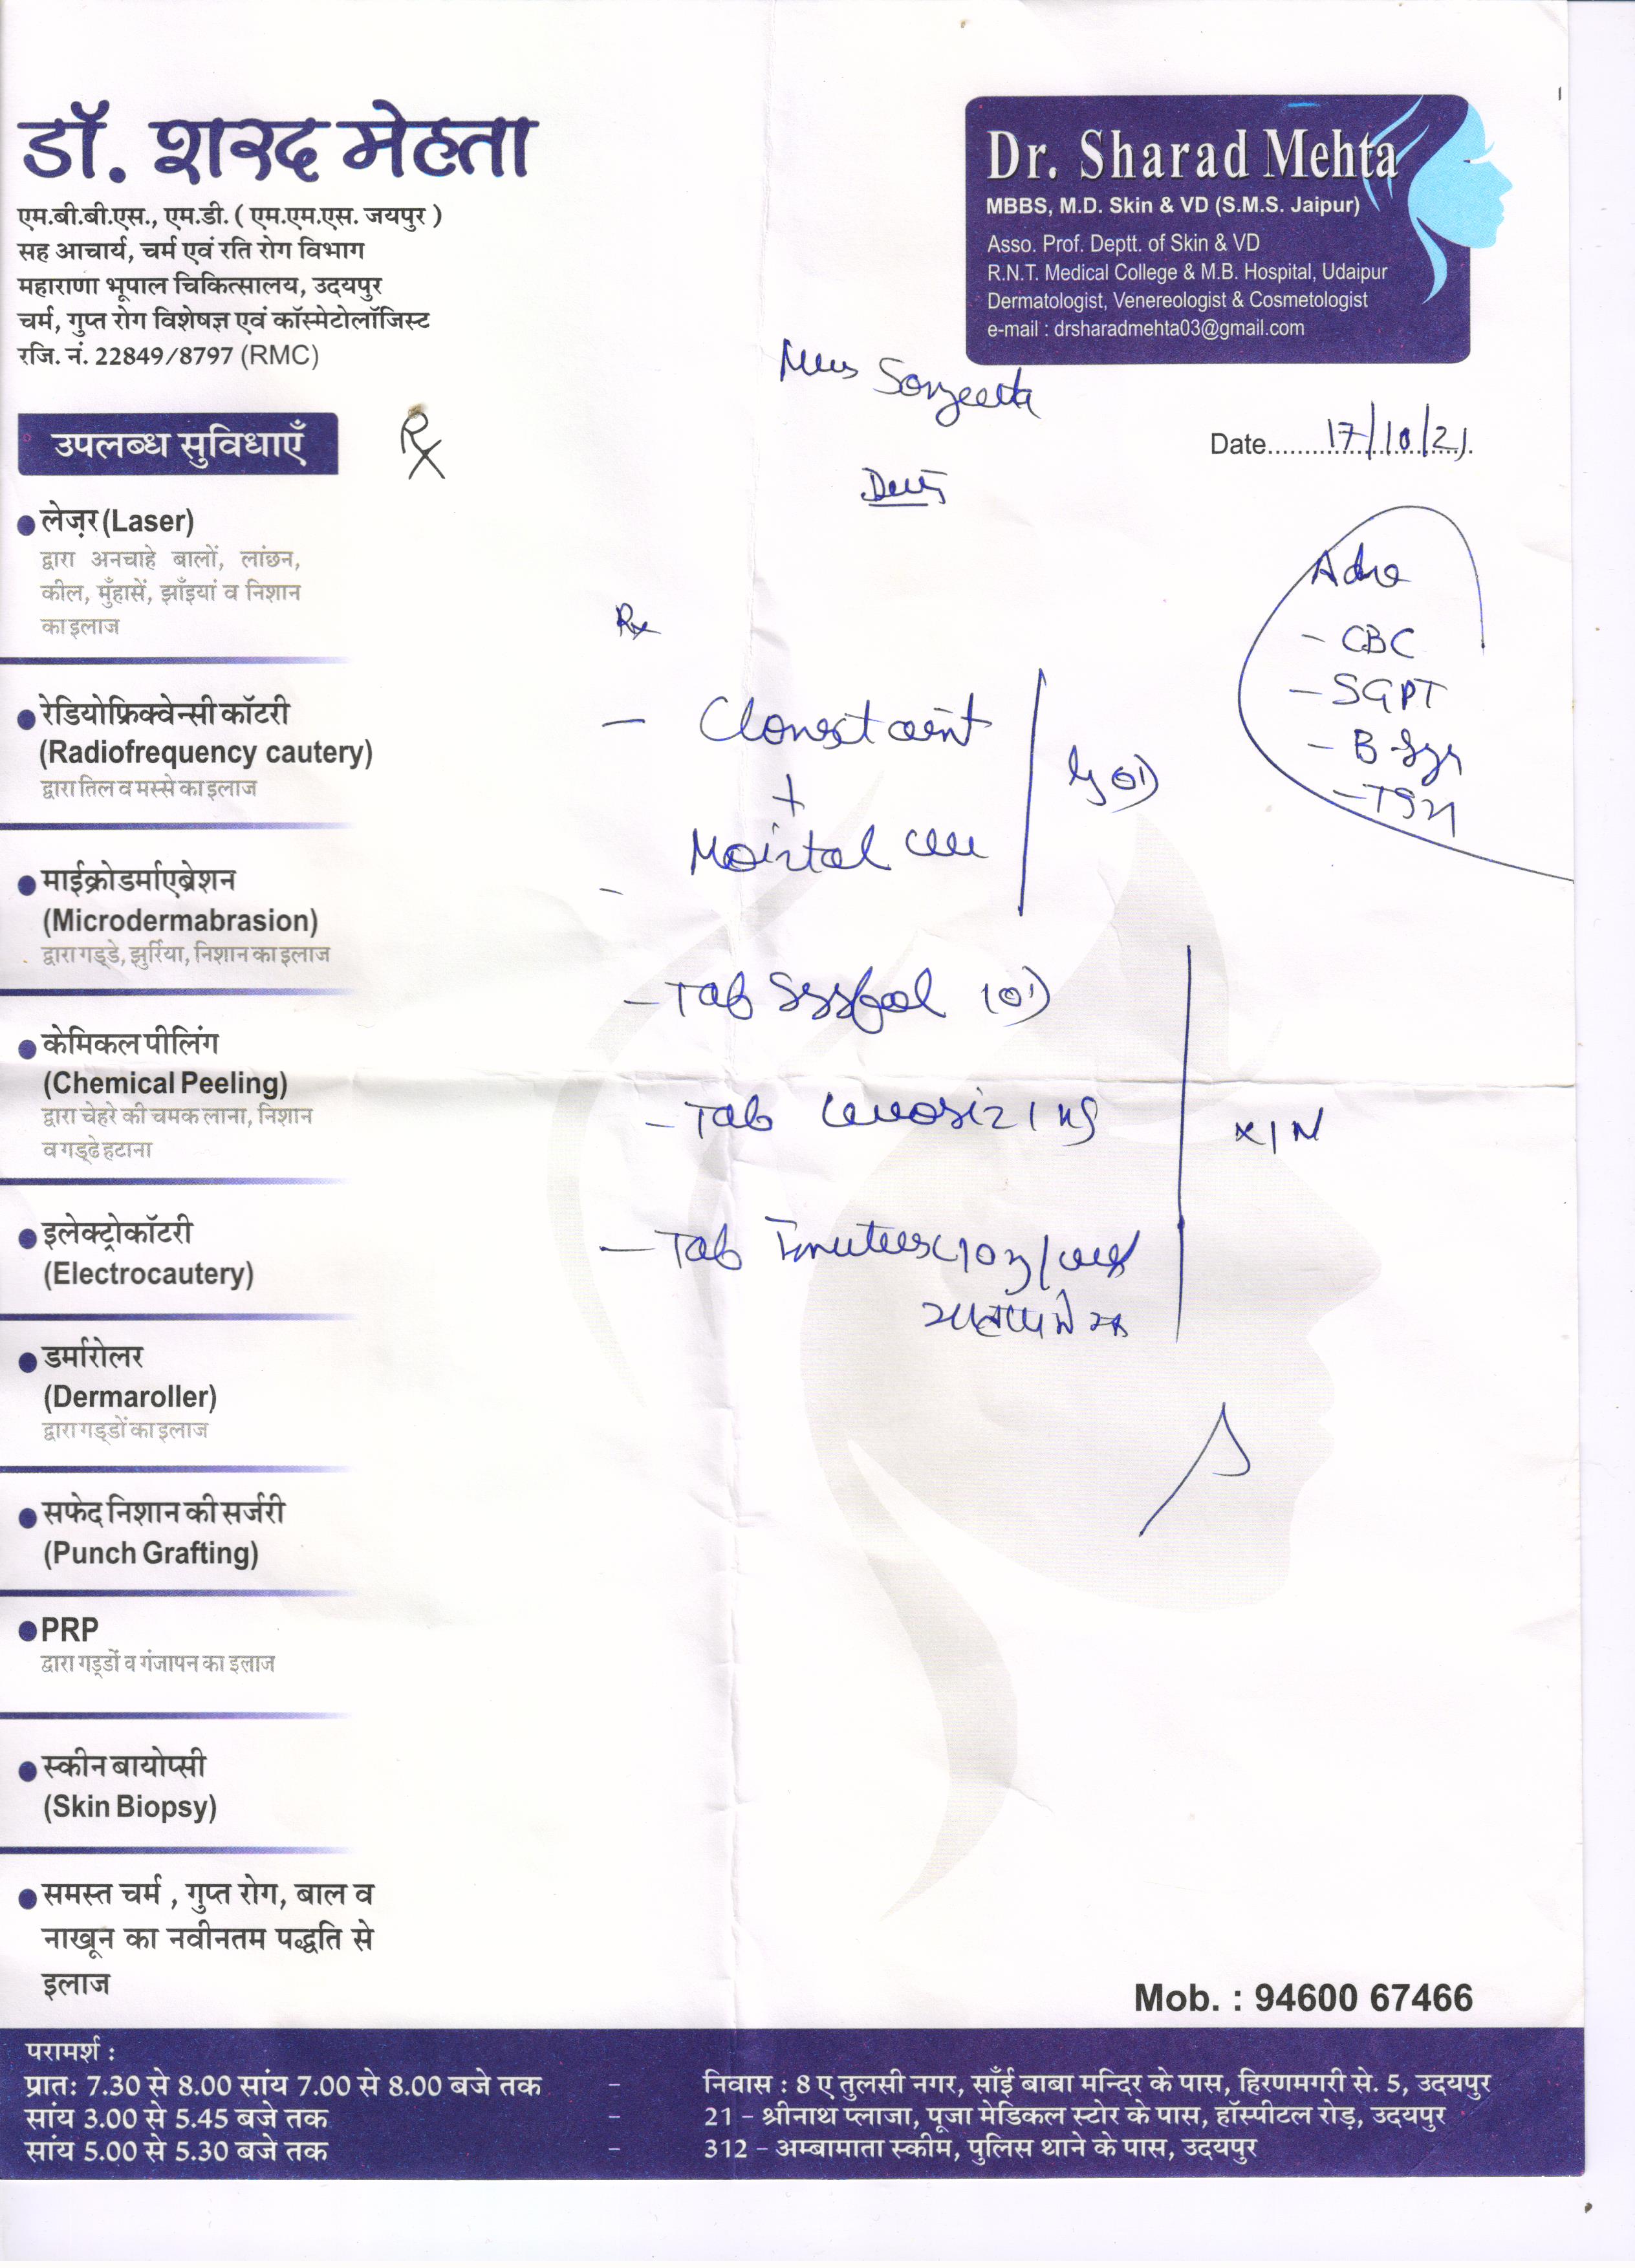 डॉ. शरद मेहता
एम.बी.बी.एस., एम.डी. ( एम.एम.एस. जयपुर )
सह आचार्य, चर्म एवं रति रोग विभाग
महाराणा भूपाल चिकित्सालय, उदयपुर
चर्म, गुप्त रोग विशेषज्ञ एवं कॉस्मेटोलॉजिस्ट
रजि. नं. 22849/8797 (RMC)
Dr. Sharad Mehta
MBBS, M.D. Skin & VD (S.M.S. Jaipur)
Asso. Prof. Deptt. of Skin & VD
R.N.T. Medical College & M.B. Hospital, Udaipur
Dermatologist, Venereologist & Cosmetologist
e-mail : drsharadmehta03@gmail.com
Date 17/10/21
Rx
- CBC
- SGPT
Rx
+
- Tab
- Tab
- Tab
उपलब्ध सुविधाएँ
लेज़र (Laser)
द्वारा अनचाहे बालों, लांछन,
कील, मुँहासें, झाँइयां व निशान
का इलाज
रेडियोफ्रिक्वेन्सी कॉटरी
(Radiofrequency cautery)
द्वारा तिल व मस्से का इलाज
माईक्रोडर्माएब्रेशन
(Microdermabrasion)
द्वारा गड्डे, झुर्रिया, निशान का इलाज
केमिकल पीलिंग
(Chemical Peeling)
द्वारा चेहरे की चमक लाना, निशान
व गड्ढे हटाना
इलेक्ट्रोकॉटरी
(Electrocautery)
डर्मारोलर
(Dermaroller)
द्वारा गड्डों का इलाज
सफेद निशान की सर्जरी
(Punch Grafting)
PRP
द्वारा गड्डों व गंजापन का इलाज
स्कीन बायोप्सी
(Skin Biopsy)
समस्त चर्म , गुप्त रोग, बाल व
नाखून का नवीनतम पद्धति से
इलाज
Mob. : 94600 67466
परामर्श :
प्रातः 7.30 से 8.00 सांय 7.00 से 8.00 बजे तक - निवास : 8 ए तुलसी नगर, साँई बाबा मन्दिर के पास, हिरणमगरी से. 5, उदयपुर
सांय 3.00 से 5.45 बजे तक - 21 - श्रीनाथ प्लाजा, पूजा मेडिकल स्टोर के पास, हॉस्पीटल रोड़, उदयपुर
सांय 5.00 से 5.30 बजे तक - 312 - अम्बामाता स्कीम, पुलिस थाने के पास, उदयपुर